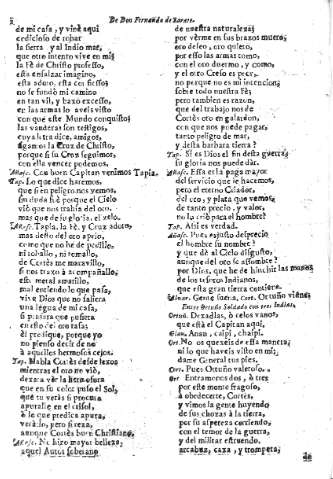 2 De Don Fernando de Zarate.
de mi casa, y vine aqui
codicioso de robar
la tierra y al Indio mar,
que otro intento vive en mi;
la Fè de Christo professo,
esta ensalzar imagino,
esta adoro, esta consiesso;
no se fundò mi camino
en tan vil, baxo excesso,
en las armas lo aveis visto
con que este Mundo conquisto;
las vanderas son testigos,
cuya letra dice, amigos,
sigamos la Cruz de Christo,
porque si su Cruz seguimos,
con ella vencer podemos.
Añasc. Con buen Capitan venimos Tapia.
Tap. Lo que dice haremos,
que si en peligros nos vemos,
sin duda fiè porque el Cielo
viò que nos trahia del oro,
mas que de su gloria, el zelo.
Añasc. Tapia, la fè, y Cruz adoro,
mas desto del oro apelo,
como que no he de pedillo,
ni roballo, ni temello,
de Cortès me maravillo,
si nos traxo à acompañallo,
esse metal amarillo,
mal entiendo lo que passa,
vive Dios que no saliera
una legua de mi casa,
si pensara que pusiera
en esto del oro tassa;
èl predique, porque yo
no pienso decir de no
à aquellos hermosos tejos.
Tap. Habla Cortès desde lexos
mientras el oro no viò,
dexara ver la hermosura
que en su color puso el Sol,
que tu veràs si procura
apurarle en el crisol,
ò lo que predica apura,
veràslo, pero si reza,
aunque Cortès buen Christiano,
Añasc. No hizo mayor belleza,
aquel Autor soberano
de nuestra naturaleza;
por verme en sus brazos muero;
oro deseo, oro quiero,
por esso las armas tomo,
con el oro duermo, y como,
y el otro Cresso es peor,
no porque no es mi intencion;
sobre todo nuestra Fè;
pero tambien es razon,
que del trabajo nos dè
Cortès oro en galardon,
con que nos puede pagar,
tanto peligro de mar,
y desta barbara tierra?
Tap. Si es Dios el fin desta guerra;
su gloria nos puede dar.
Añasc. Essa es la paga mayor
del servicio que le hacemos,
pero el eterno Criador,
del oro, y plata que vemos
de tanto precio, y valor,
no lo criò para el hombre?
Tap. Assi es verdad.
Añasc. Pues es justo desprecio
el hombre su nombre?
y que dè al Cielo disgusto,
aunque del oro se assombre?
por Dios, que he de hinchir las manos
de los tesoros Indianos,
que esta gran tierra contiene.
Gente suena, Ortuño viene;
Entre Ortuño Soldado con tres Indios,
Ortuñ. Dexadlas, ò zelos vanos,
que està el Capitan aqui,
Anan, calpi, chalpi.
Ort. No os quexeis de essa manera;
ni lo que haveis visto en mi,
dame General tus pies.
Cort. Pues Ortuño valeroso.
Ort Entramonos dos, ò tres
por este monte fragoso,
à obedecerte, Cortès,
y vimos la gente huyendo
de sus chozas à la tierra,
por su aspereza corriendo,
con el temor de la guerra,
y del militar estruendo.
arcabuz, caxa, y trompeta;
de